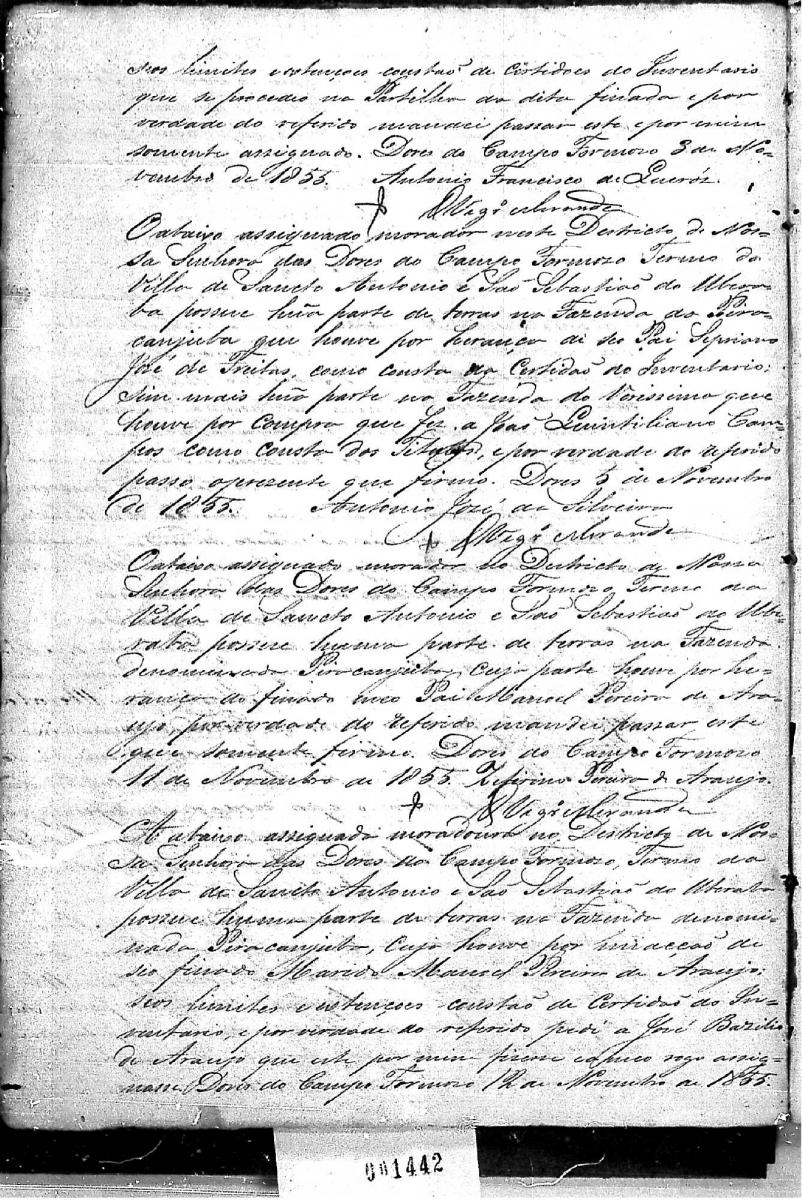 seos limites e extençoes constaõ de Certidoes do Inventario
que se procedeo na Partilha da dita finada e por
verdade do referido mandei passar este e por mim
somente assignado. Dores do Campo Formozo 3 de No-
vembro de 1855. Antonio Francisco de Queróz.
O Vigrº Miranda
O abaixo assignado morador neste Districto de Nos-
sa Senhora das Dores do Campo Formozo Termo da
Villa de Sancto Antonio e Saõ Sebastiaõ do Ubera-
ba possue huã parte de terras na Fazenda da Pira-
canjuba que houve por herança di seo Pai Sipriano
José de Freitas, como consta da Certidaõ do Inventario:
tem mais huã parte na Fazenda do Verissimo que
houve por compra que fez a Joaõ Quintiliano Cam-
pos como consta dos Titulos, e por verdade do referido
passo o prezente que firmo. Dores 5 de Novembro
de 1855. Antonio José da Silveira
O Vigrº Miranda
O abaixo assignado morador no Districto de Nossa
Senhora das Dores do Campo Formozo Termo da
Villa de Sancto Antonio e Saõ Sebastiaõ do Ube-
raba possue huma parte de terras na Fazenda
denominada Piracanjuba, cuja parte houve por he-
rança do finado meo Pai Manoel Pereira de Ara-
ujo, por verdade do referido mandei passar este
que somente firmo. Dores do Campo Formozo
11 de Novembro de 1855. Zeferino Pereira de Araujo.
O Vigrº Miranda
A abaixo assignada moradoura no Districto de Nos-
sa Senhora das Dores do Campo Formozo, Termo da
Villa de Sancto Antonio e Saõ Sebastiaõ do Uberaba
possue huma parte de terras na Fazenda denomi-
nada Piracanjuba, cuja houve por miaçaõ de
seo finado Marido Manoel Pereira de Araujo:
seos limites e extençoes constaõ de Certidaõ do In-
ventario, e por verdade do referido pedi a José Bazilio
de Araujo que este por mim firme e a meo rogo assig-
nasse Dores do Campo Formozo 12 de Novembro de 1855.
001442